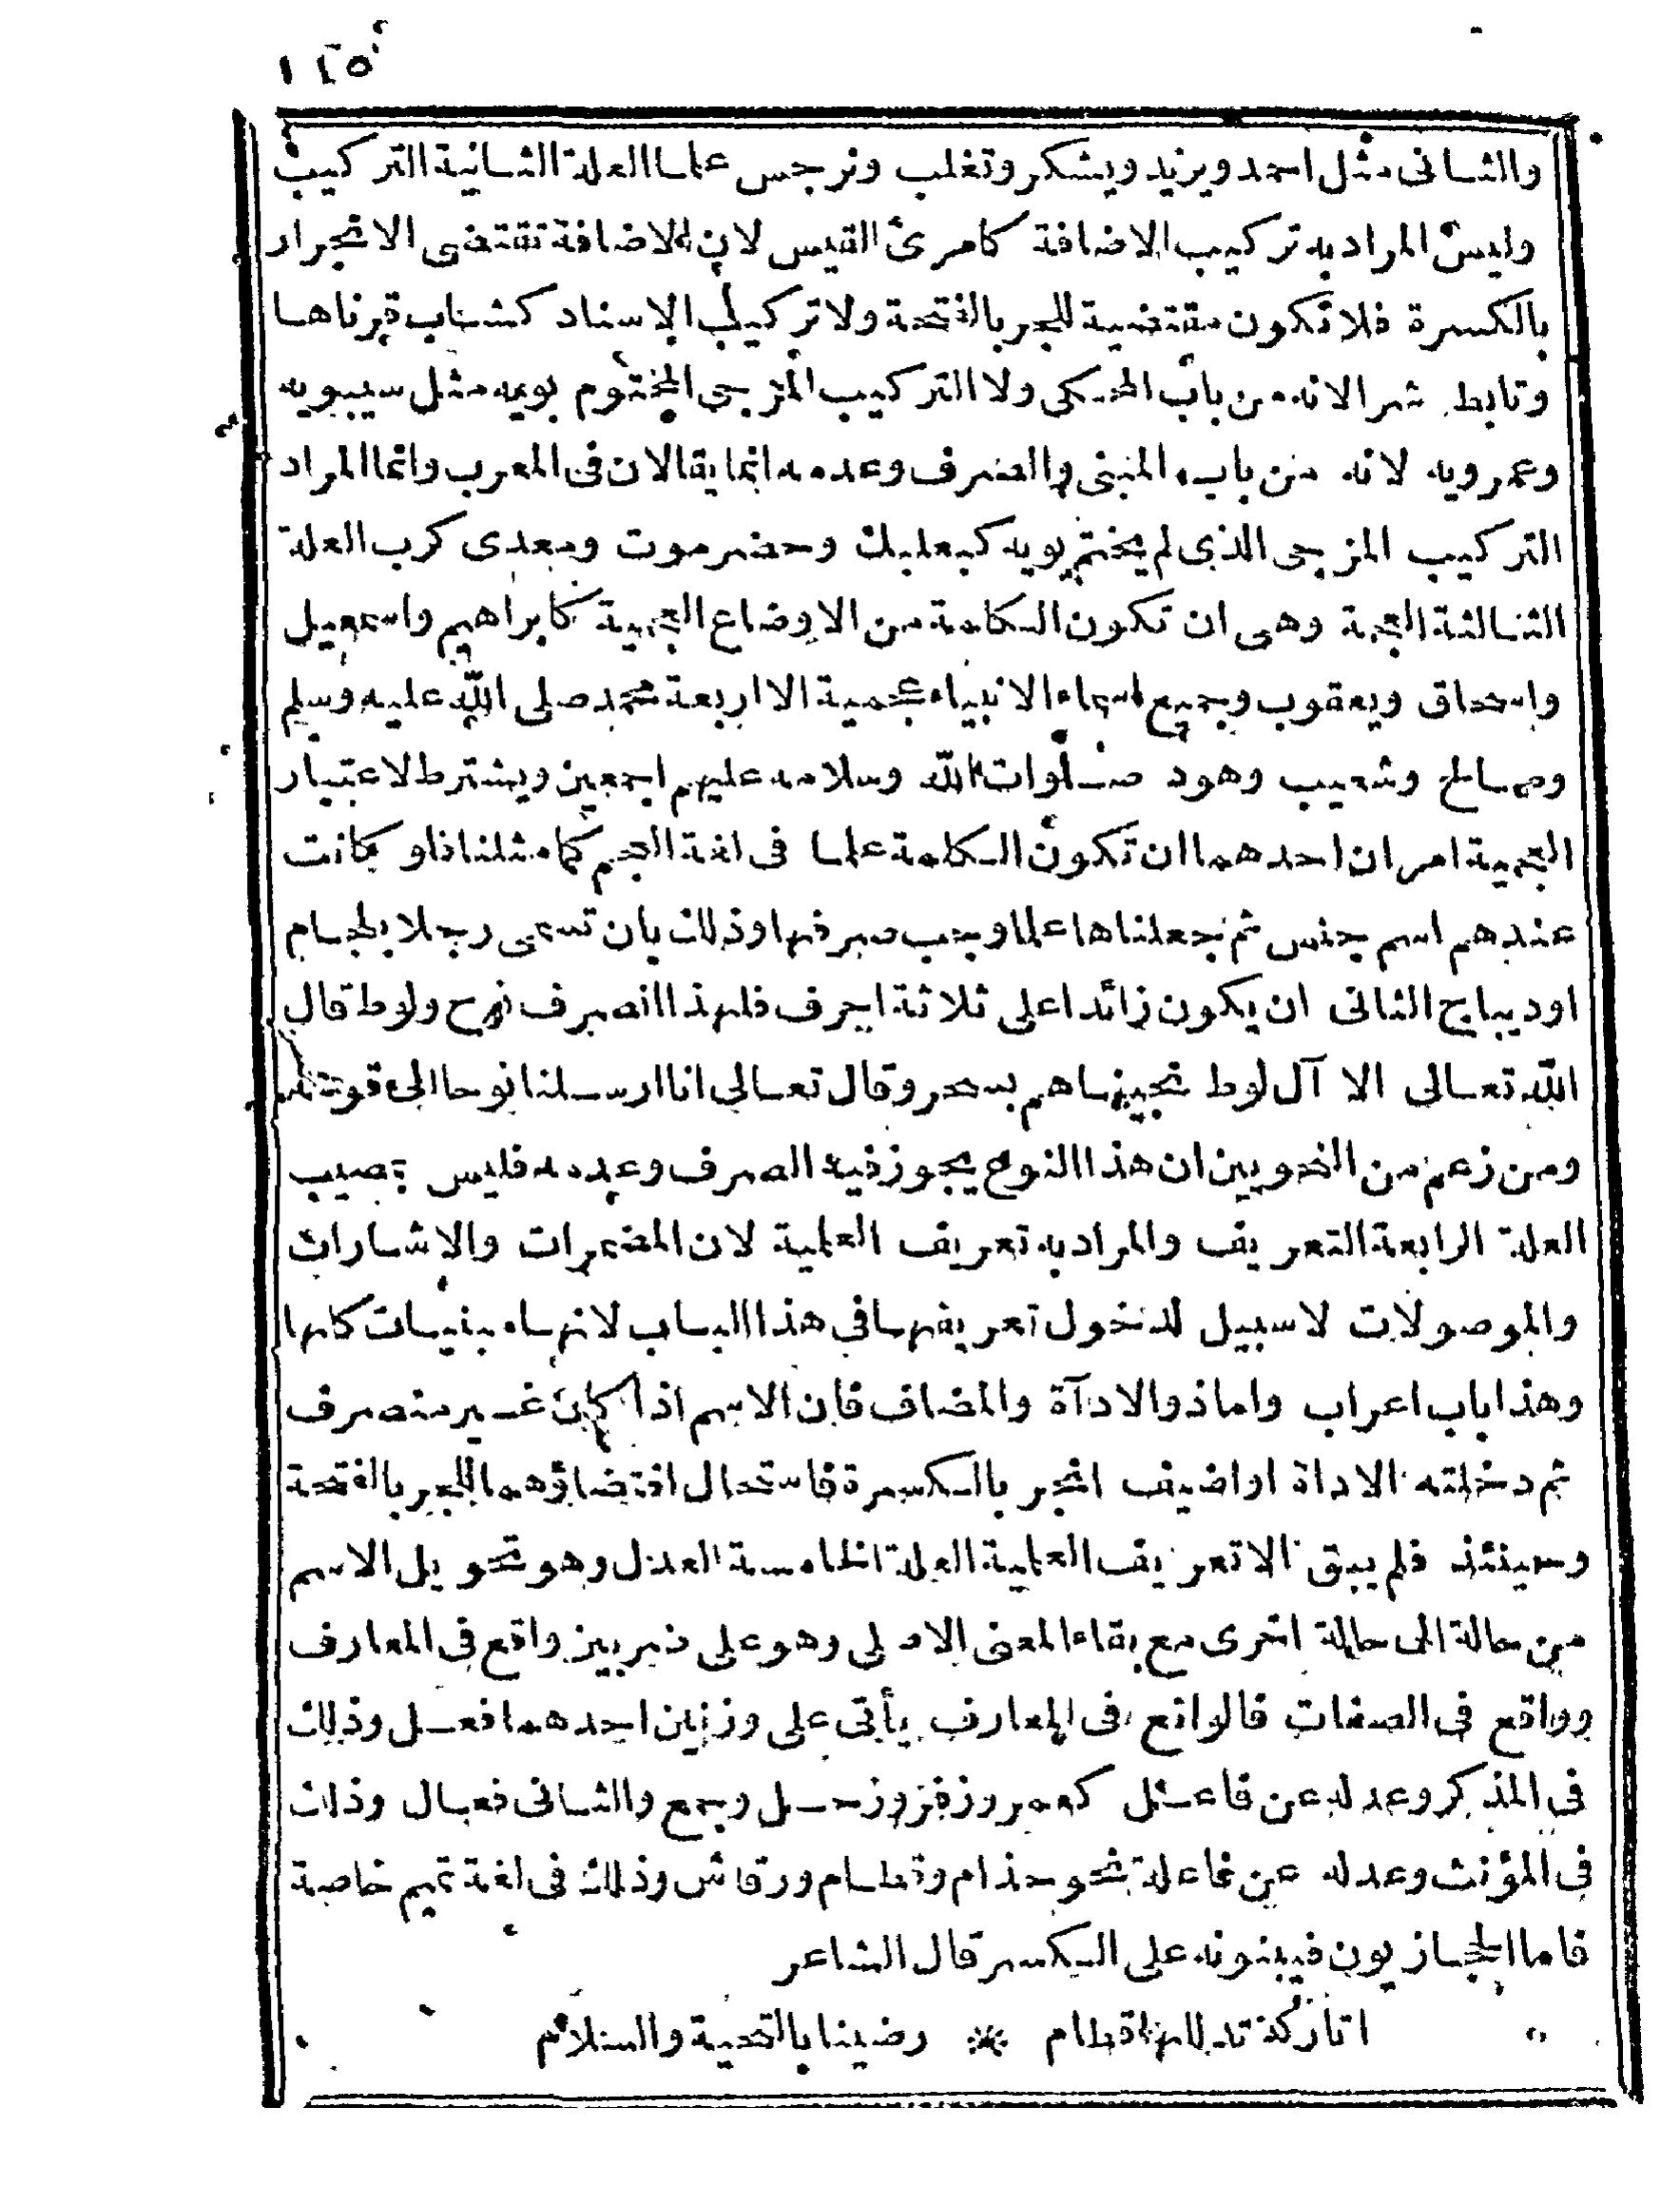 ١٤٥
والثانى مثل احمد ويزيد ويشكر وتغلب ونرجس علما العلة الثانية التركيب
وليس المراد به تركيب الاضافة كامرئ القيس لان الاضافة تقتضى الانجرار
بالكسرة فلا تكون مقتضية للجر بالفتحة ولا تركيب الاسناد كشاب قرناها
وتابط شرا لانه من باب المحكى ولا التركيب المزجى المختوم بويه مثل سيبويه
وعمرويه لانه من باب المبنى والصرف وعدمه انما يقالان فى المعرب وانما المراد
التركيب المزجى الذى لم يختم بويه كبعلبك وحضرموت ومعدى كرب العلة
الثالثة العجمة وهى ان تكون الكلمة من الاوضاع العجمية كابراهيم واسمعيل
واسحاق ويعقوب وجميع اسماء الانبياء عجمية الا اربعة محمد صلى الله عليه وسلم
وصالح وشعيب وهود صلوات الله وسلامه عليهم اجمعين ويشترط لاعتبار
العجمية امران احدهما ان تكون الكلمة علما فى لغة العجم كما مثلنا فلو كانت
عندهم اسم جنس ثم جعلناها علما وجب صرفها وذلك بان تسمى رجلا بلجام
او ديباج الثانى ان يكون زائدا على ثلاثة احرف فلهذا انصرف نوح ولوط قال
الله تعالى الا آل لوط نجيناهم بسحر وقال تعالى انا ارسلنا نوحا الى قومه
ومن زعم من النحويين ان هذا النوع يجوز فيه الصرف وعدمه فليس بمصيب
العلة الرابعة التعريف والمراد به تعريف العلمية لان المضمرات والاشارات
والموصولات لا سبيل لدخول تعريفها فى هذا الباب لانها مبنيات كلها
وهذا باب اعراب واما ذو الادآة والمضاف فان الاسم اذا كان غير منصرف
ثم دخلته الاداة او اضيف انجر بالكسرة فاستحال اقتضاؤهما للجر بالفتحة
وحينئذ فلم يبق الا تعريف العلمية العلة الخامسة العدل وهو تحويل الاسم
من حالة الى حالة اخرى مع بقاء المعنى الاصلى وهو على ضربين واقع فى المعارف
وواقع فى الصفات فالواقع فى المعارف يأتى على وزنين احدهما فعل وذلك
فى المذكر وعدله عن فاعل كعمر وزفر وزحل وجمع والثانى فعال وذلك
فى المؤنث وعدله عن فاعلة نحو حذام وقطام ورقاش وذلك فى لغة تميم خاصة
فاما الحجازيون فيبنونه على الكسر قال الشاعر
اتاركة تدللها قطام * رضينا بالتحية والسلام